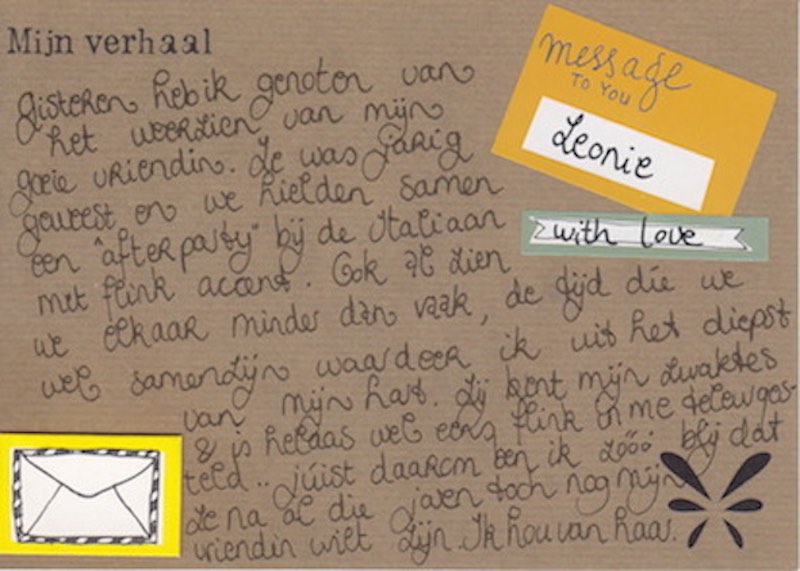 Mijn verhaal
message
TO YOU
Leonie
with love
gisteren heb ik genoten van
het weerzien van mijn
goeie vriendin. Ze was jarig
geweest en we hielden samen
een "afterparty" bij de Italiaan
met flink accent. Ook al zien
we elkaar minder dan vaak, de tijd die we
wel samenzijn waardeer ik uit het diepst
van mijn hart. Zij kent mijn zwaktes
& is helaas wel eens flink in me teleurges-
teld.. júist daarom ben ik zóóó blij dat
ze na al die jaren toch nog mijn
vriendin wilt zijn. Ik hou van haar.